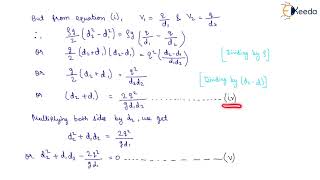 But from equation (i), V₁ = q/d₁ & V₂ = q/d₂
Ekeeda
∴ ρg/2 (d₂² - d₁²) = ρq (q/d₁ - q/d₂)
or g/2 (d₂+d₁) (d₂-d₁) = q² (d₂-d₁)/d₁d₂ [Dividing by ρ]
or g/2 (d₂+d₁) = q²/d₁d₂ [Dividing by (d₂-d₁)]
or (d₂+d₁) = 2q²/gd₁d₂ ............ (iv)
Multiplying both side by d₂, we get
d₂² + d₁d₂ = 2q²/gd₁
or d₂² + d₁d₂ - 2q²/gd₁ = 0 ............ (v)